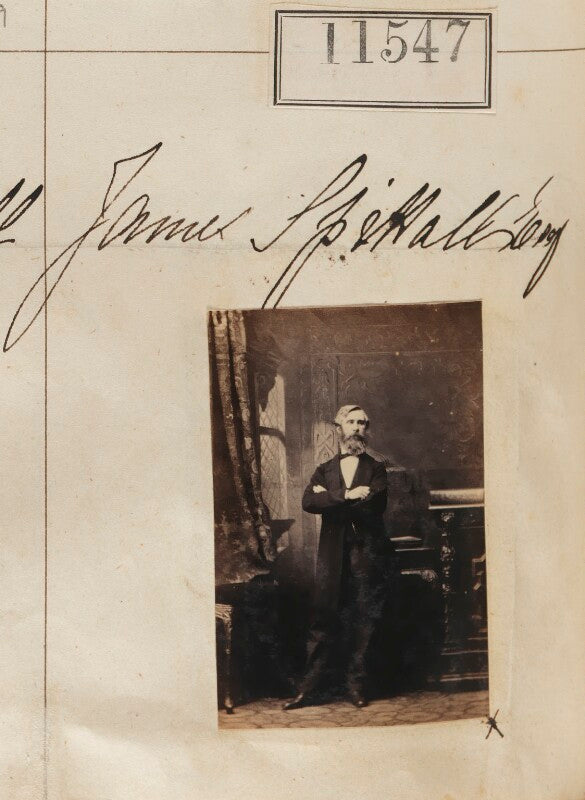 11547
James Spittall Esq